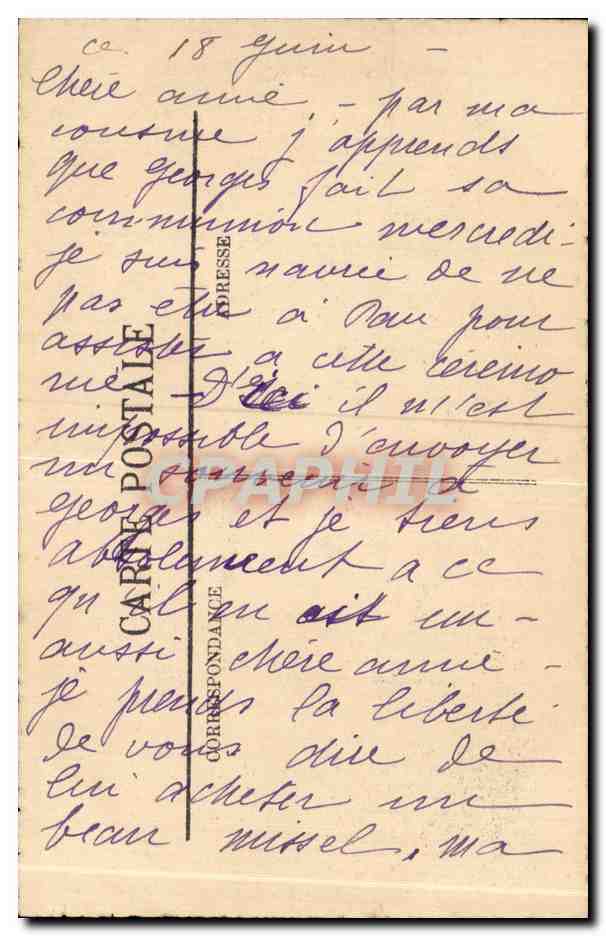 ce 18 Juin -
Chère amie - par ma
cousine j'apprends
que Georges fait sa
communion mercredi -
je suis navrée de ne
pas être à Pau pour
assister a cette cérémo
nie - D'ici il m'est
impossible d'envoyer
un souvenir à
Georges et je tiens
absolument a ce
qu'il en ait un -
aussi chère amie -
je prends la liberté
de vous dire de
lui acheter un
beau missel, ma
CARTE POSTALE
CORRESPONDANCE
ADRESSE
CPAPHIL